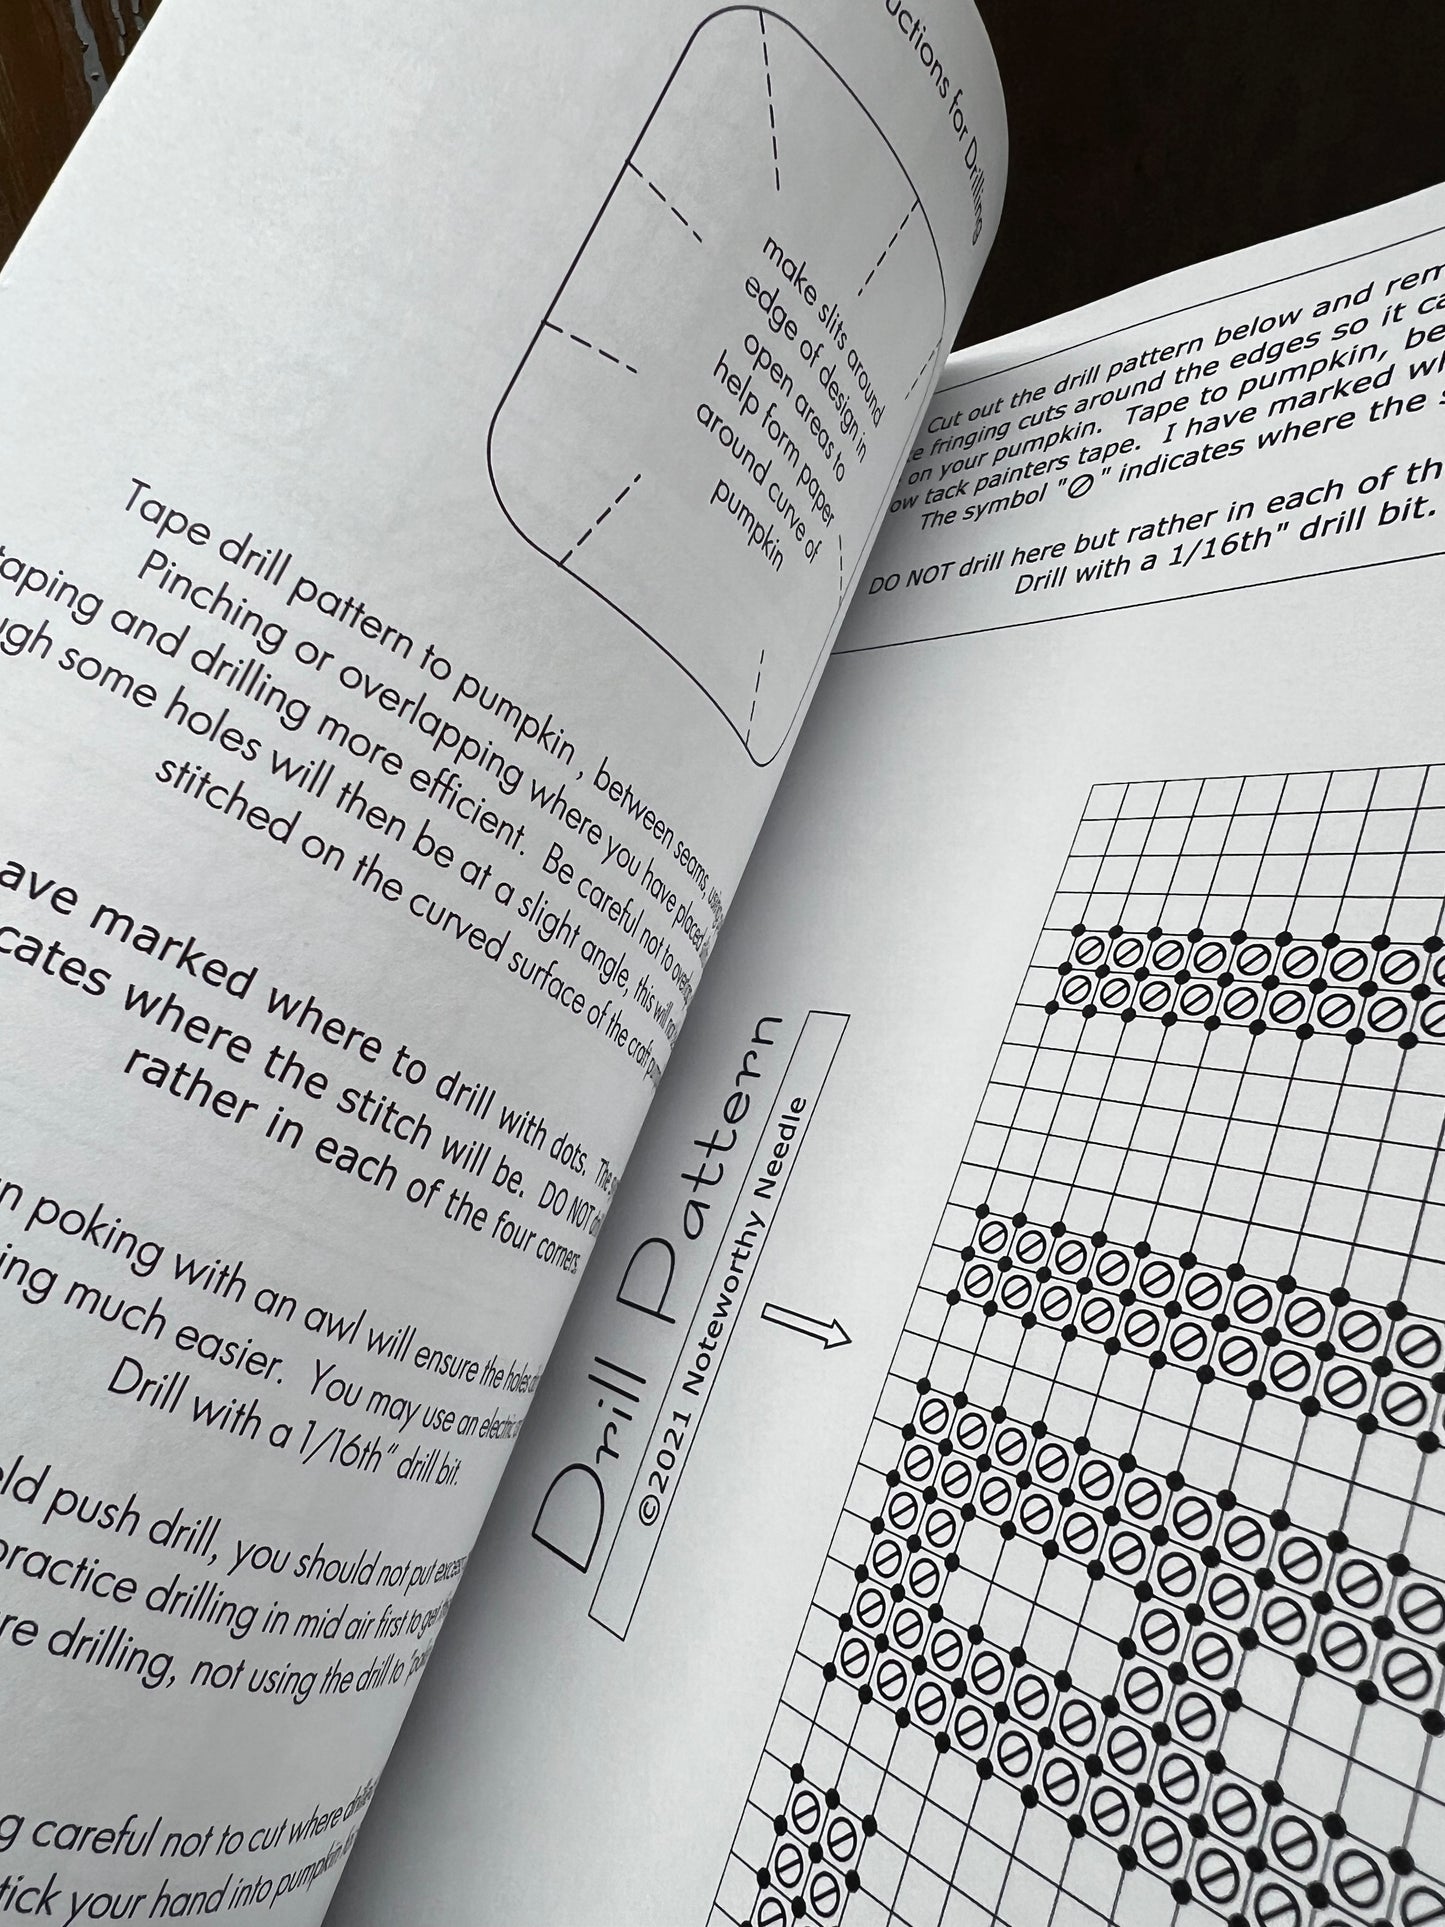 for Drilling
make slits around
edge of design in
open areas to
help form paper
around curve of
pumpkin
Tape drill pattern to pumpkin, between seams,
Pinching or overlapping where you have placed
taping and drilling more efficient. Be careful not to
some holes will then be at a slight angle, this will
stitched on the curved surface of the craft
marked where to drill with dots. The
where the stitch will be. DO NOT
rather in each of the four corners.
poking with an awl will ensure the holes
much easier. You may use an electric
Drill with a 1/16th" drill bit.
push drill, you should not put
practice drilling in mid air first to get
drilling, not using the drill to
careful not to cut where
your hand into pumpkin
Cut out the drill pattern below and
fringing cuts around the edges so it
on your pumpkin. Tape to pumpkin,
tack painters tape. I have marked
The symbol "⊘" indicates where the
DO NOT drill here but rather in each of
Drill with a 1/16th" drill bit.
Drill Pattern
©2021 Noteworthy Needle